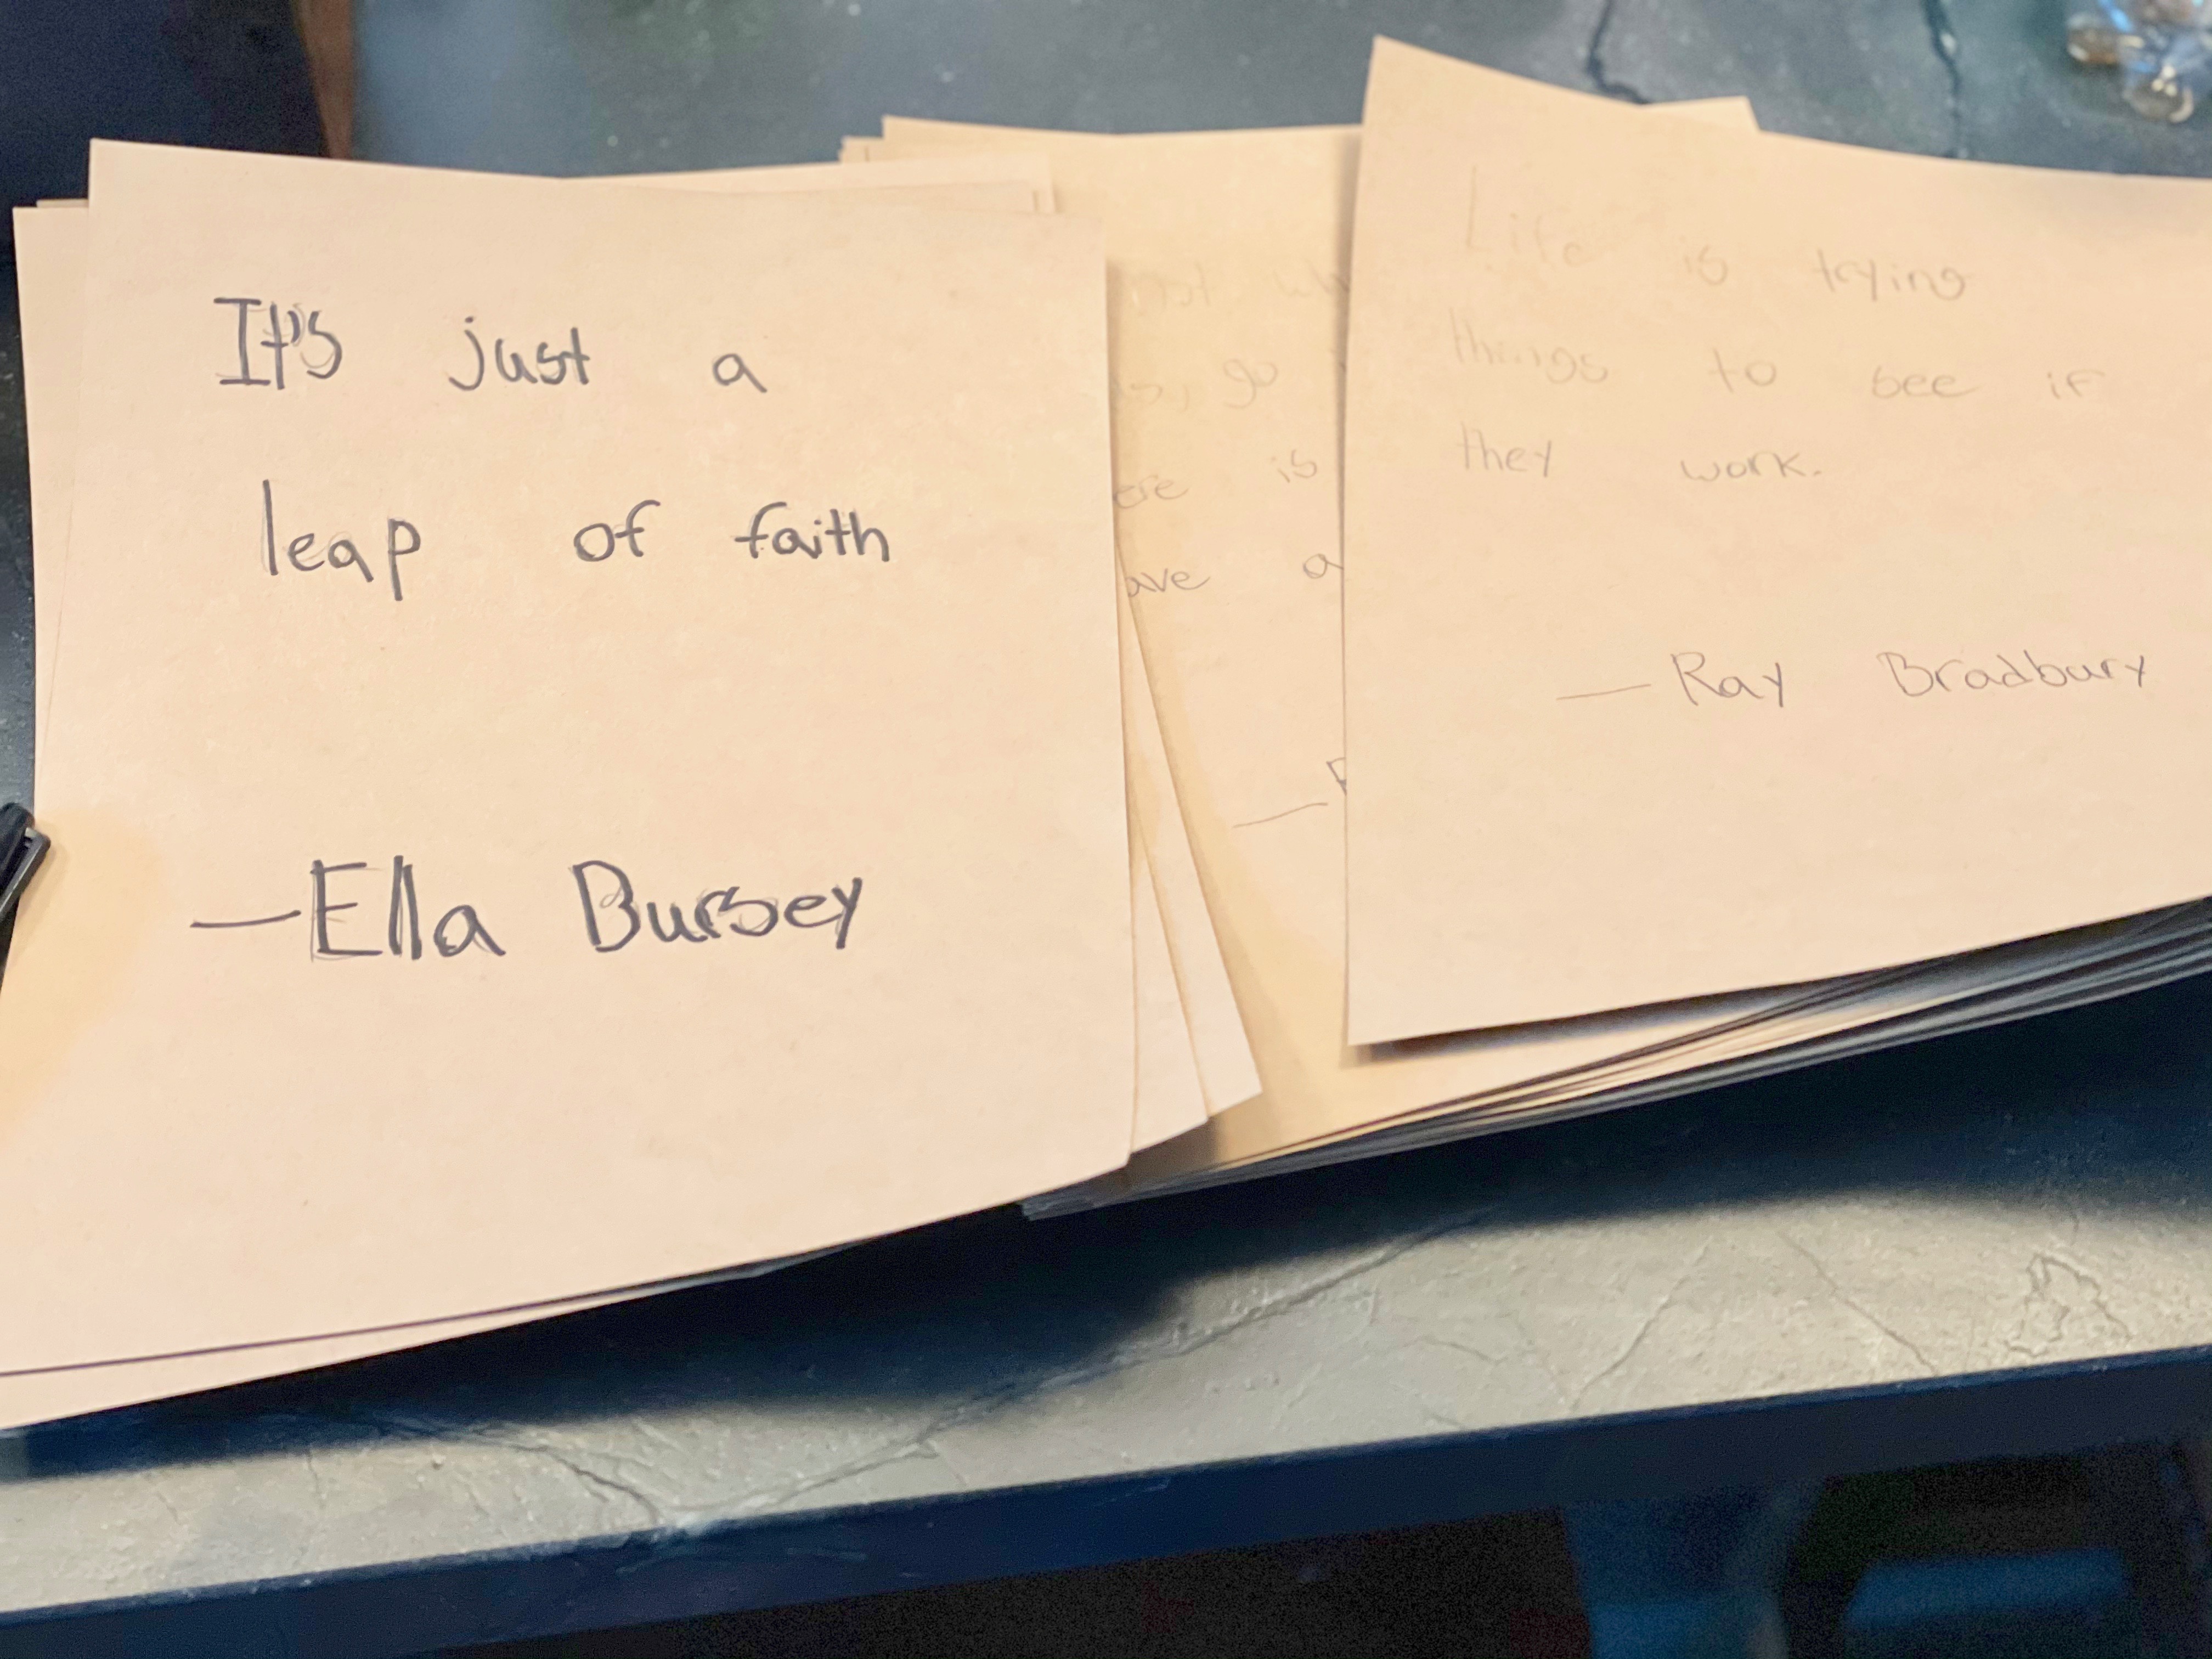 It's just a
leap of faith
—Ella Bursey
not
go
is
a
Life is trying
things to see if
they work.
—Ray Bradbury